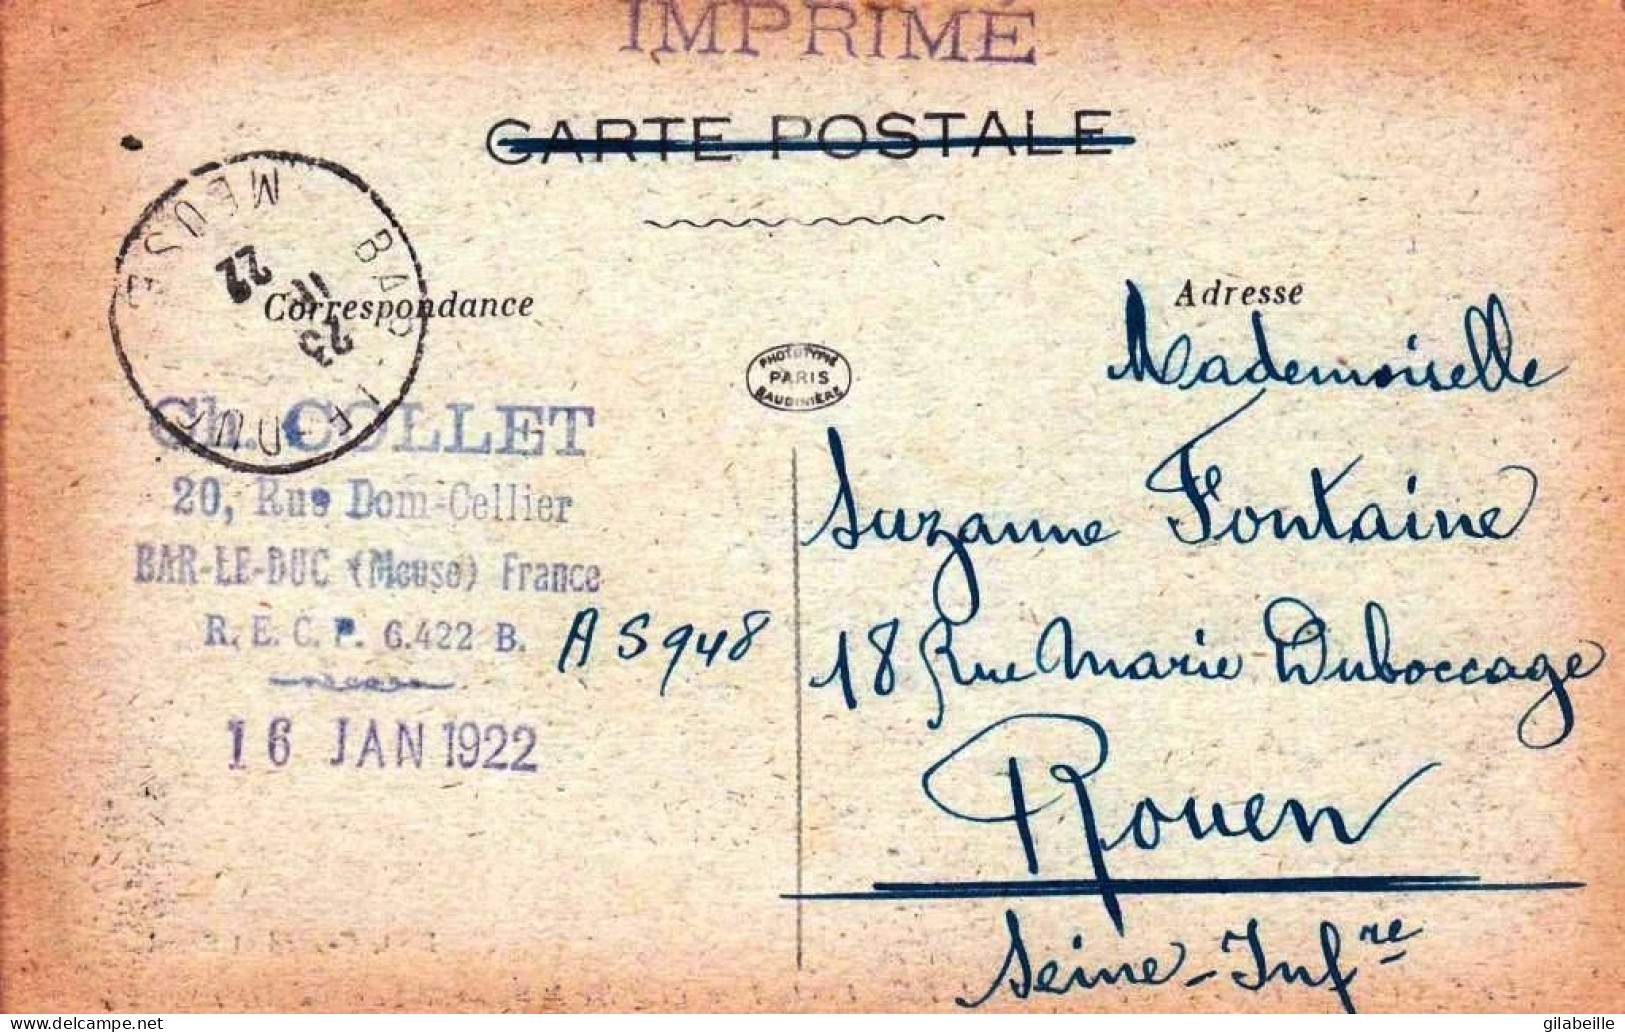 IMPRIMÉ
CARTE POSTALE
BAR-LE-DUC
MEUSE
23
22
Correspondance
Adresse
PHOTOTYPIE
PARIS
BAUDINIÈRE
Ch. COLLET
20, Rue Dom-Cellier
BAR-LE-DUC (Meuse) France
R. E. C. P. 6.422 B.
16 JAN 1922
A 5948
Mademoiselle
Suzanne Fontaine
18 Rue Marie Duboccage
Rouen
Seine-Infre
delcampe.net
gilabeille